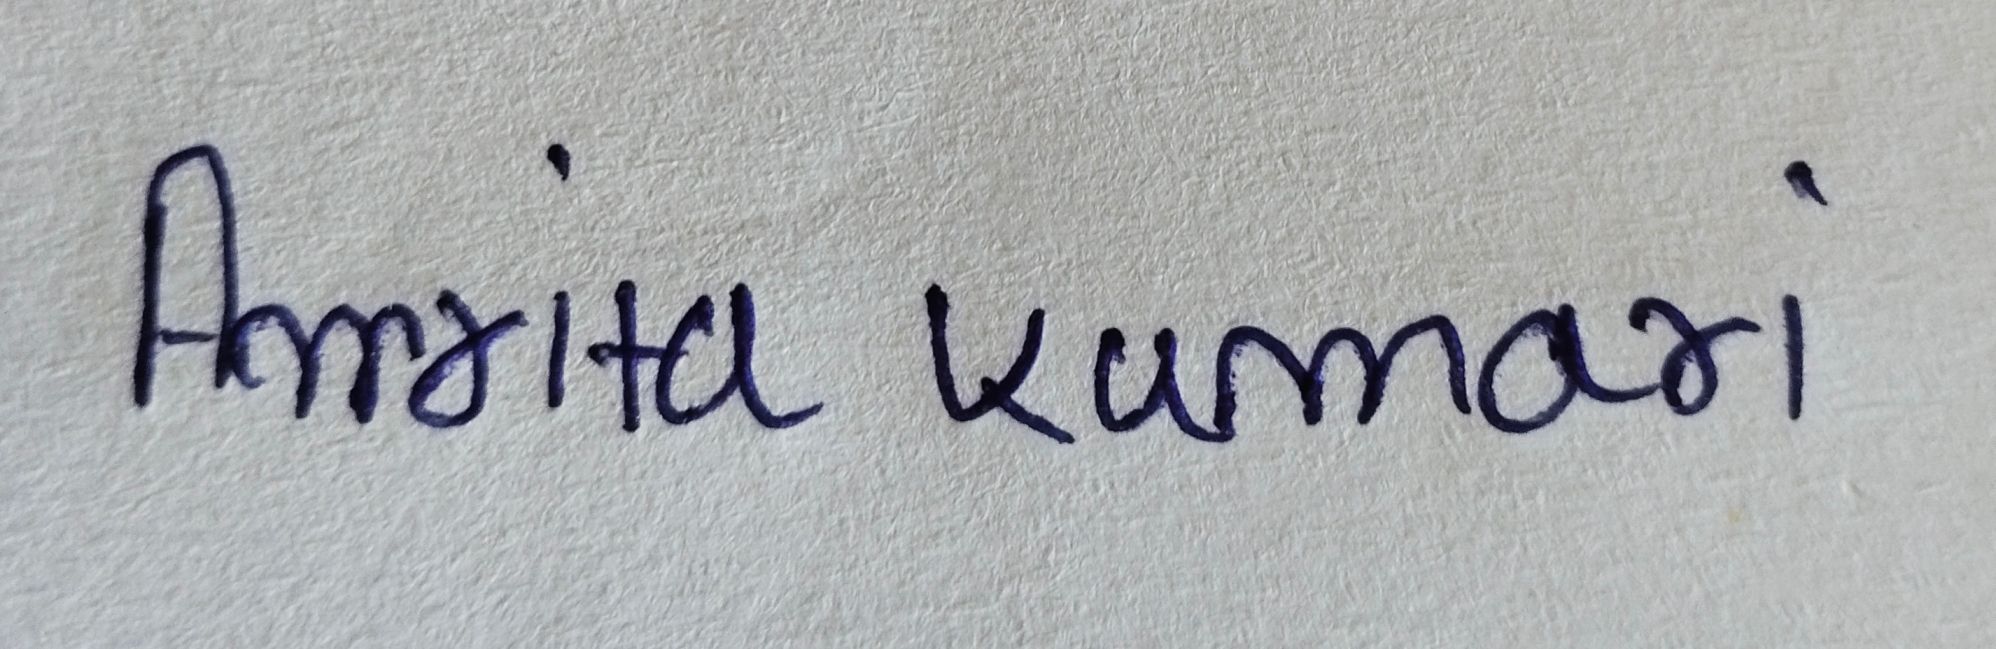 Amrita kumari